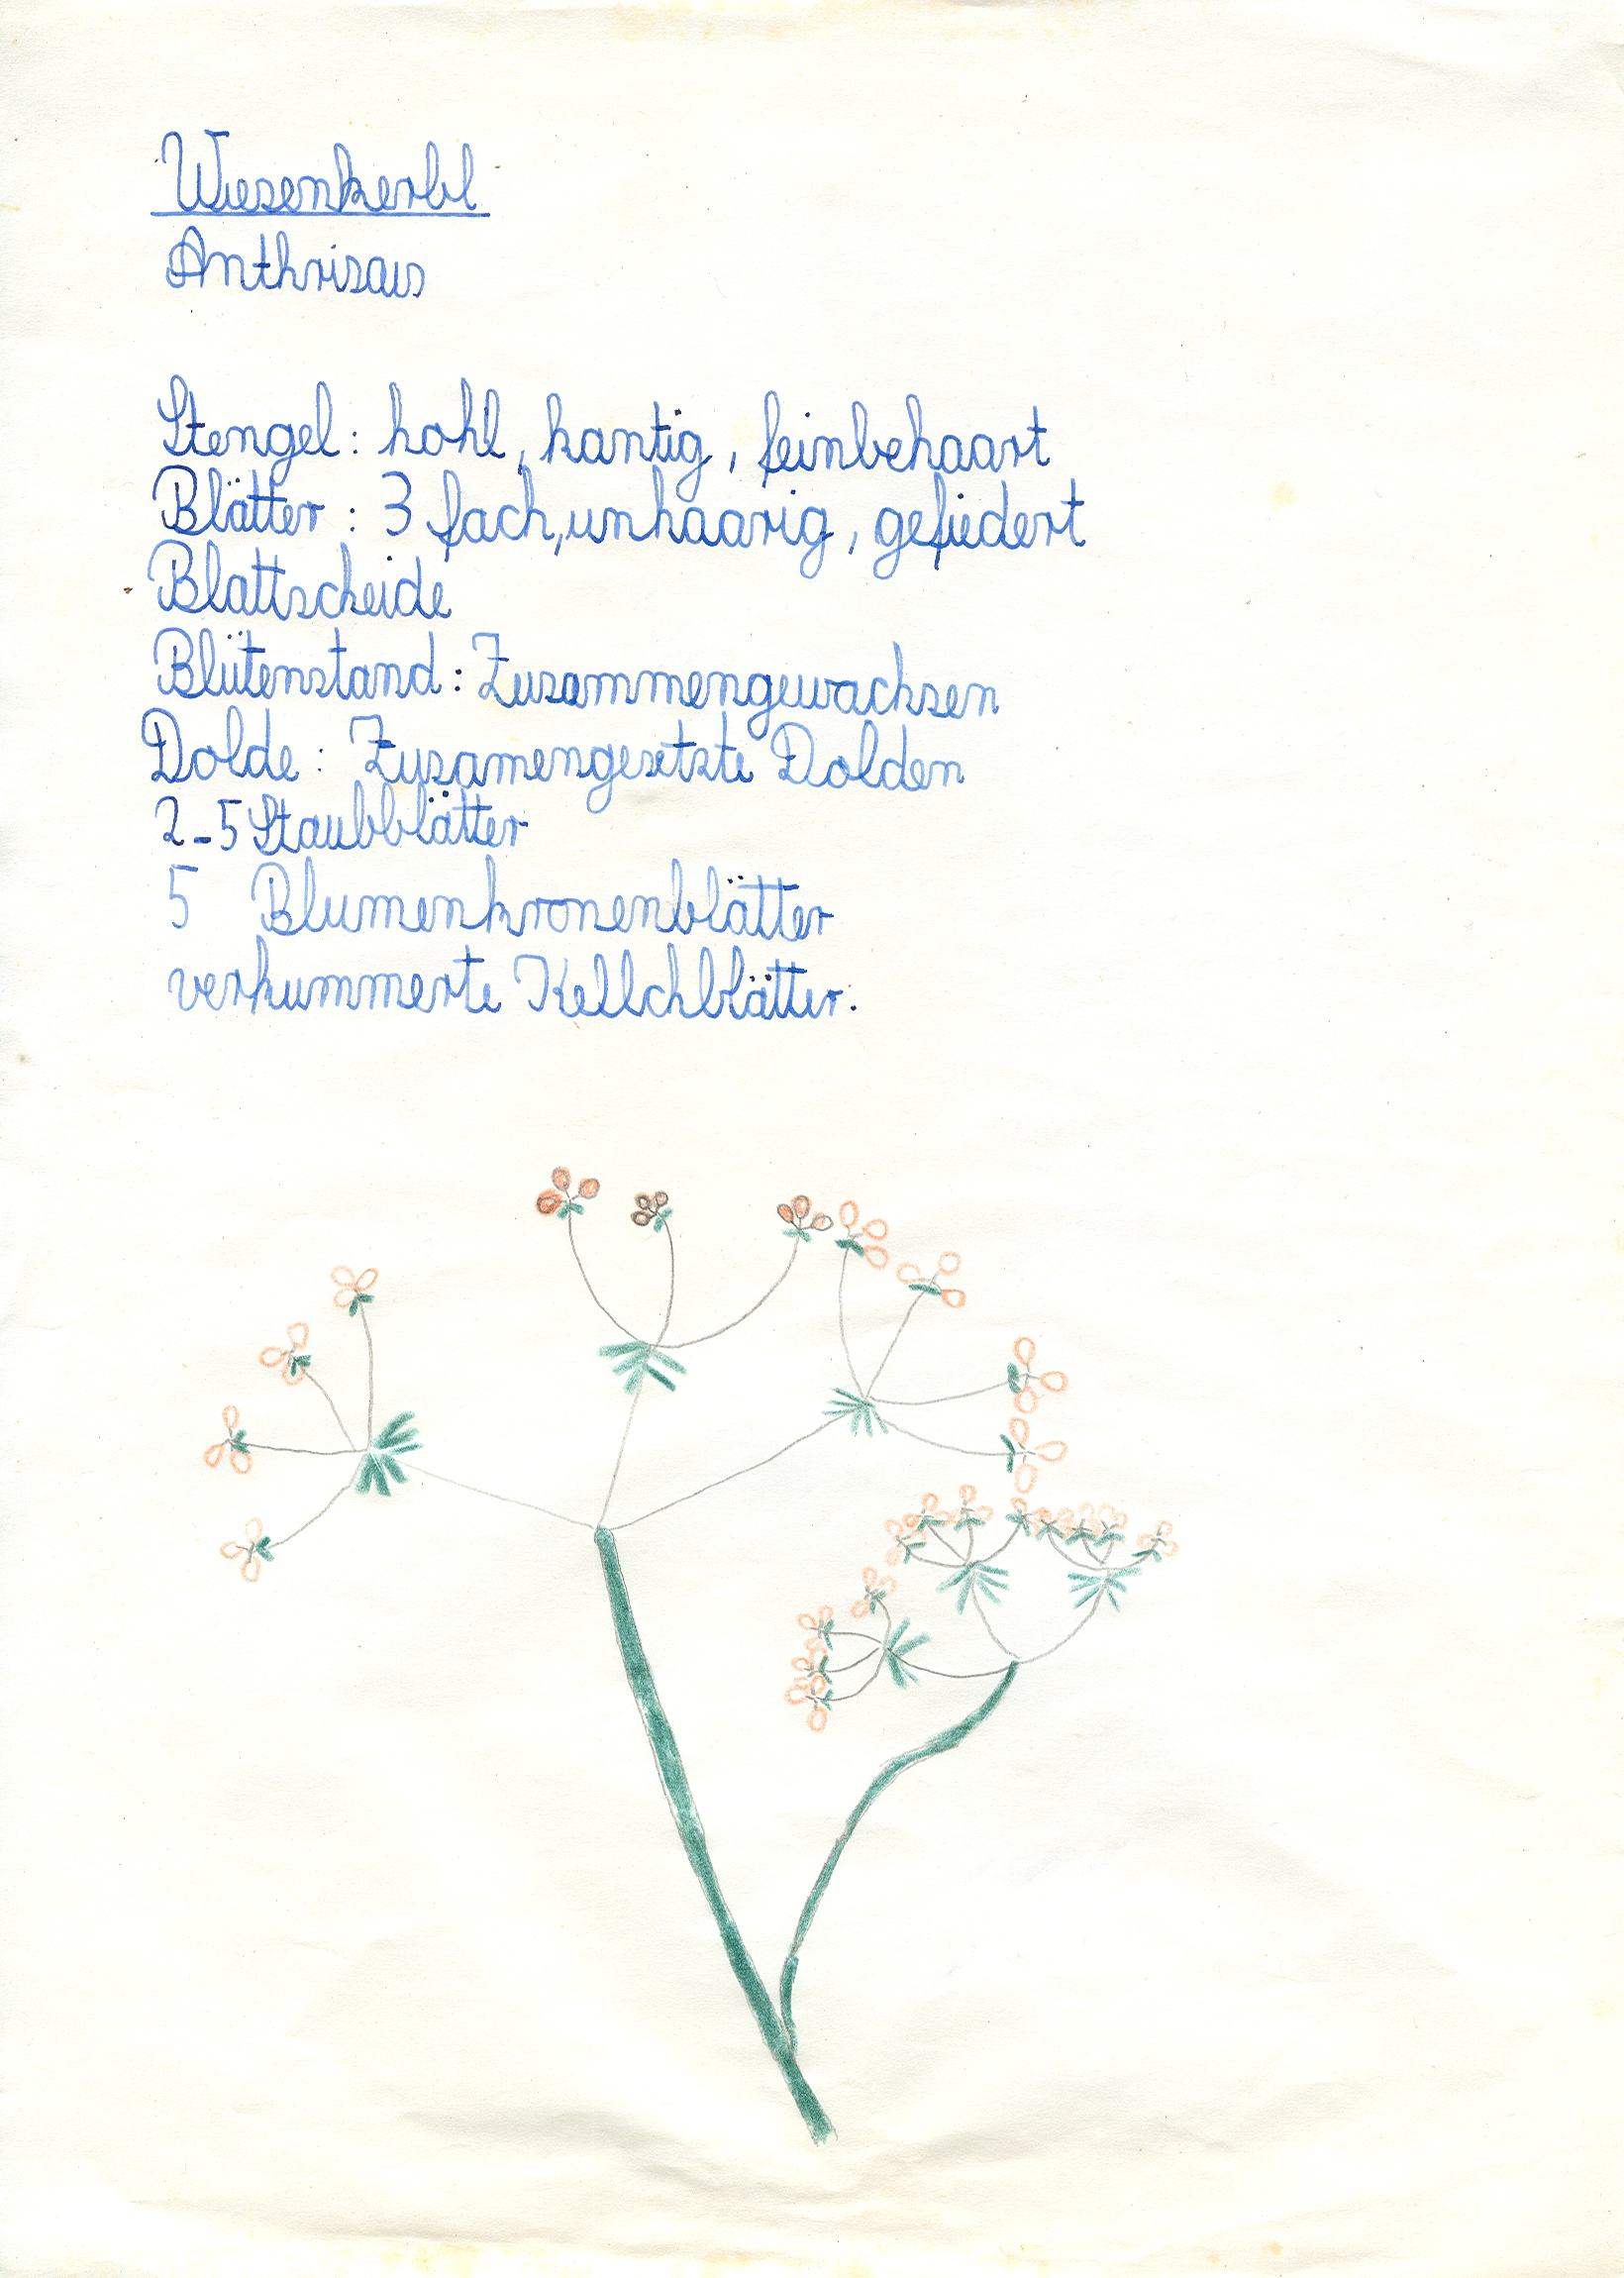 Wiesenkerbl
Anthrisaus
Stengel: hohl, kantig, feinbehaart
Blätter: 3 fach, unhaarig, gefiedert
Blattscheide
Blütenstand: Zusammengewachsen
Dolde: Zusamengesetzte Dolden
2-5 Staubblätter
5 Blumenkronenblätter
verkummerte Kellchblätter: